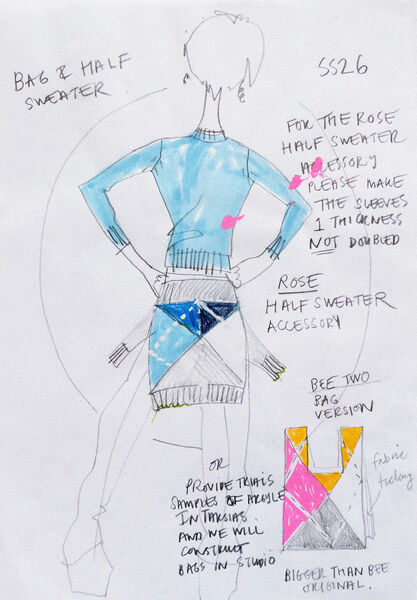 BAG & HALF
SWEATER
SS26
FOR THE ROSE
HALF SWEATER
ACCESSORY
PLEASE MAKE
THE SLEEVES
1 THICKNESS
NOT DOUBLED
ROSE
HALF SWEATER
ACCESSORY
BEE TWO
BAG
VERSION
fabric
OR
PROVIDE TRIALS
SAMPLES OF ARGYLE
INTARSIAS
AND WE WILL
CONSTRUCT
BAGS IN STUDIO
BIGGER THAN BEE
ORIGINAL.